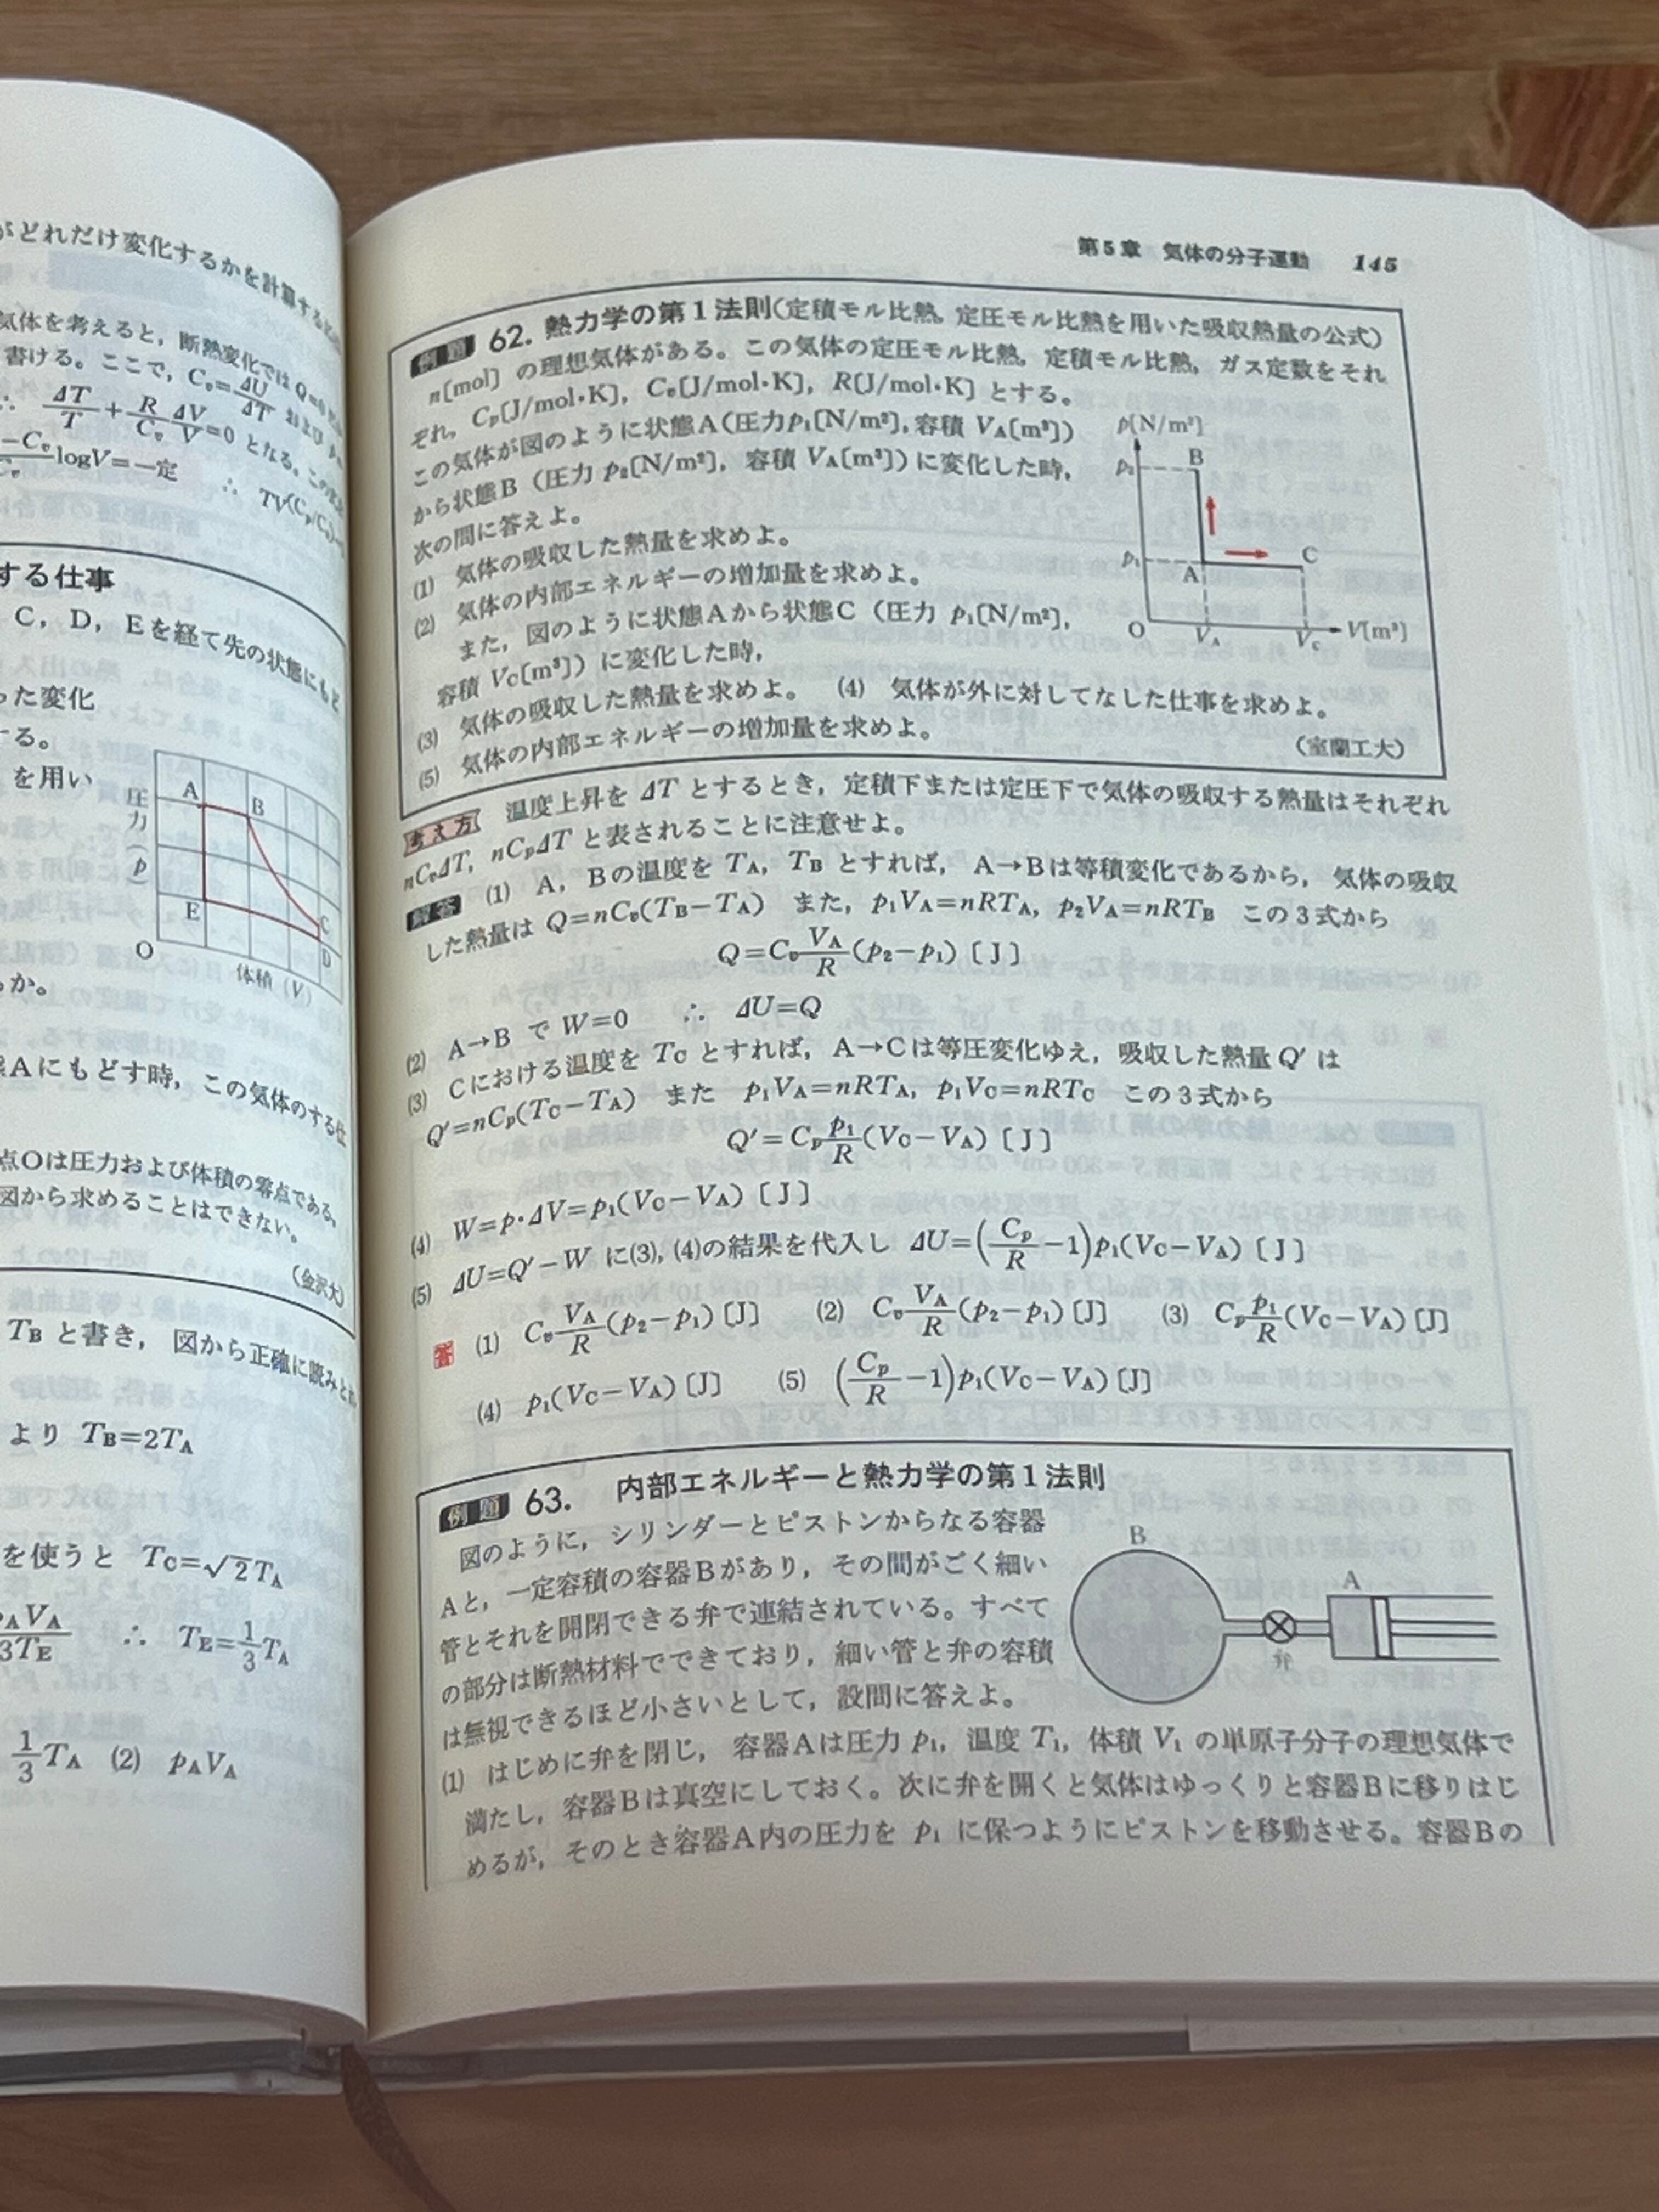 がどれだけ変化するかを計算する
気体を考えると,断熱変化では Q=0
書ける。ここで, Cv=ΔU/ΔT および
∴ ΔT/T+R/Cv ΔV/V=0 となる。この
logV=一定 ∴ TV(Cp/Cv)
する仕事
C, D, Eを経て先の状態にもど
った変化
する。
を用い
圧力(p)
A B
E C
D
O 体積(V)
か。
態Aにもどす時,この気体のする仕
点Oは圧力および体積の零点である。
図から求めることはできない。
(金沢大)
TBと書き,図から正確に読みと
より TB=2TA
を使うと TC=√2TA
PAVA/3TE ∴ TE=1/3TA
1/3TA (2) pAVA
第5章 気体の分子運動 145
例題 62. 熱力学の第1法則(定積モル比熱,定圧モル比熱を用いた吸収熱量の公式)
n[mol] の理想気体がある。この気体の定圧モル比熱,定積モル比熱,ガス定数をそれ
ぞれ, Cp[J/mol・K], Cv[J/mol・K], R[J/mol・K] とする。
この気体が図のように状態A(圧力p₁[N/m²],容積 VA[m³])
から状態B(圧力 p₂[N/m²],容積 VA[m³])に変化した時,
次の問に答えよ。
(1) 気体の吸収した熱量を求めよ。
(2) 気体の内部エネルギーの増加量を求めよ。
また,図のように状態Aから状態C(圧力 p₁[N/m²],
容積 VC[m³])に変化した時,
(3) 気体の吸収した熱量を求めよ。 (4) 気体が外に対してなした仕事を求めよ。
(5) 気体の内部エネルギーの増加量を求めよ。 (室蘭工大)
p[N/m²]
p₂ B
p₁ A C
O VA VC V[m³]
考え方 温度上昇を ΔT とするとき,定積下または定圧下で気体の吸収する熱量はそれぞれ
nCvΔT, nCpΔT と表されることに注意せよ。
解答 (1) A, Bの温度を TA, TB とすれば, A→Bは等積変化であるから,気体の吸収
した熱量は Q=nCv(TB−TA) また, p₁VA=nRTA, p₂VA=nRTB この3式から
Q=Cv VA/R(p₂−p₁) [J]
(2) A→B で W=0 ∴ ΔU=Q
(3) Cにおける温度を TC とすれば, A→Cは等圧変化ゆえ,吸収した熱量 Q′ は
Q′=nCp(TC−TA) また p₁VA=nRTA, p₁VC=nRTC この3式から
Q′=Cp p₁/R(VC−VA) [J]
(4) W=p・ΔV=p₁(VC−VA) [J]
(5) ΔU=Q′−W に(3), (4)の結果を代入し ΔU=(Cp/R−1)p₁(VC−VA) [J]
答 (1) Cv VA/R(p₂−p₁) [J] (2) Cv VA/R(p₂−p₁) [J] (3) Cp p₁/R(VC−VA) [J]
(4) p₁(VC−VA) [J] (5) (Cp/R−1)p₁(VC−VA) [J]
例題 63. 内部エネルギーと熱力学の第1法則
図のように,シリンダーとピストンからなる容器
Aと,一定容積の容器Bがあり,その間がごく細い
管とそれを開閉できる弁で連結されている。すべて
の部分は断熱材料でできており,細い管と弁の容積
は無視できるほど小さいとして,設問に答えよ。
B A
弁
(1) はじめに弁を閉じ,容器Aは圧力 p₁,温度 T₁,体積 V₁ の単原子分子の理想気体で
満たし,容器Bは真空にしておく。次に弁を開くと気体はゆっくりと容器Bに移りはじ
めるが,そのとき容器A内の圧力を p₁ に保つようにピストンを移動させる。容器Bの